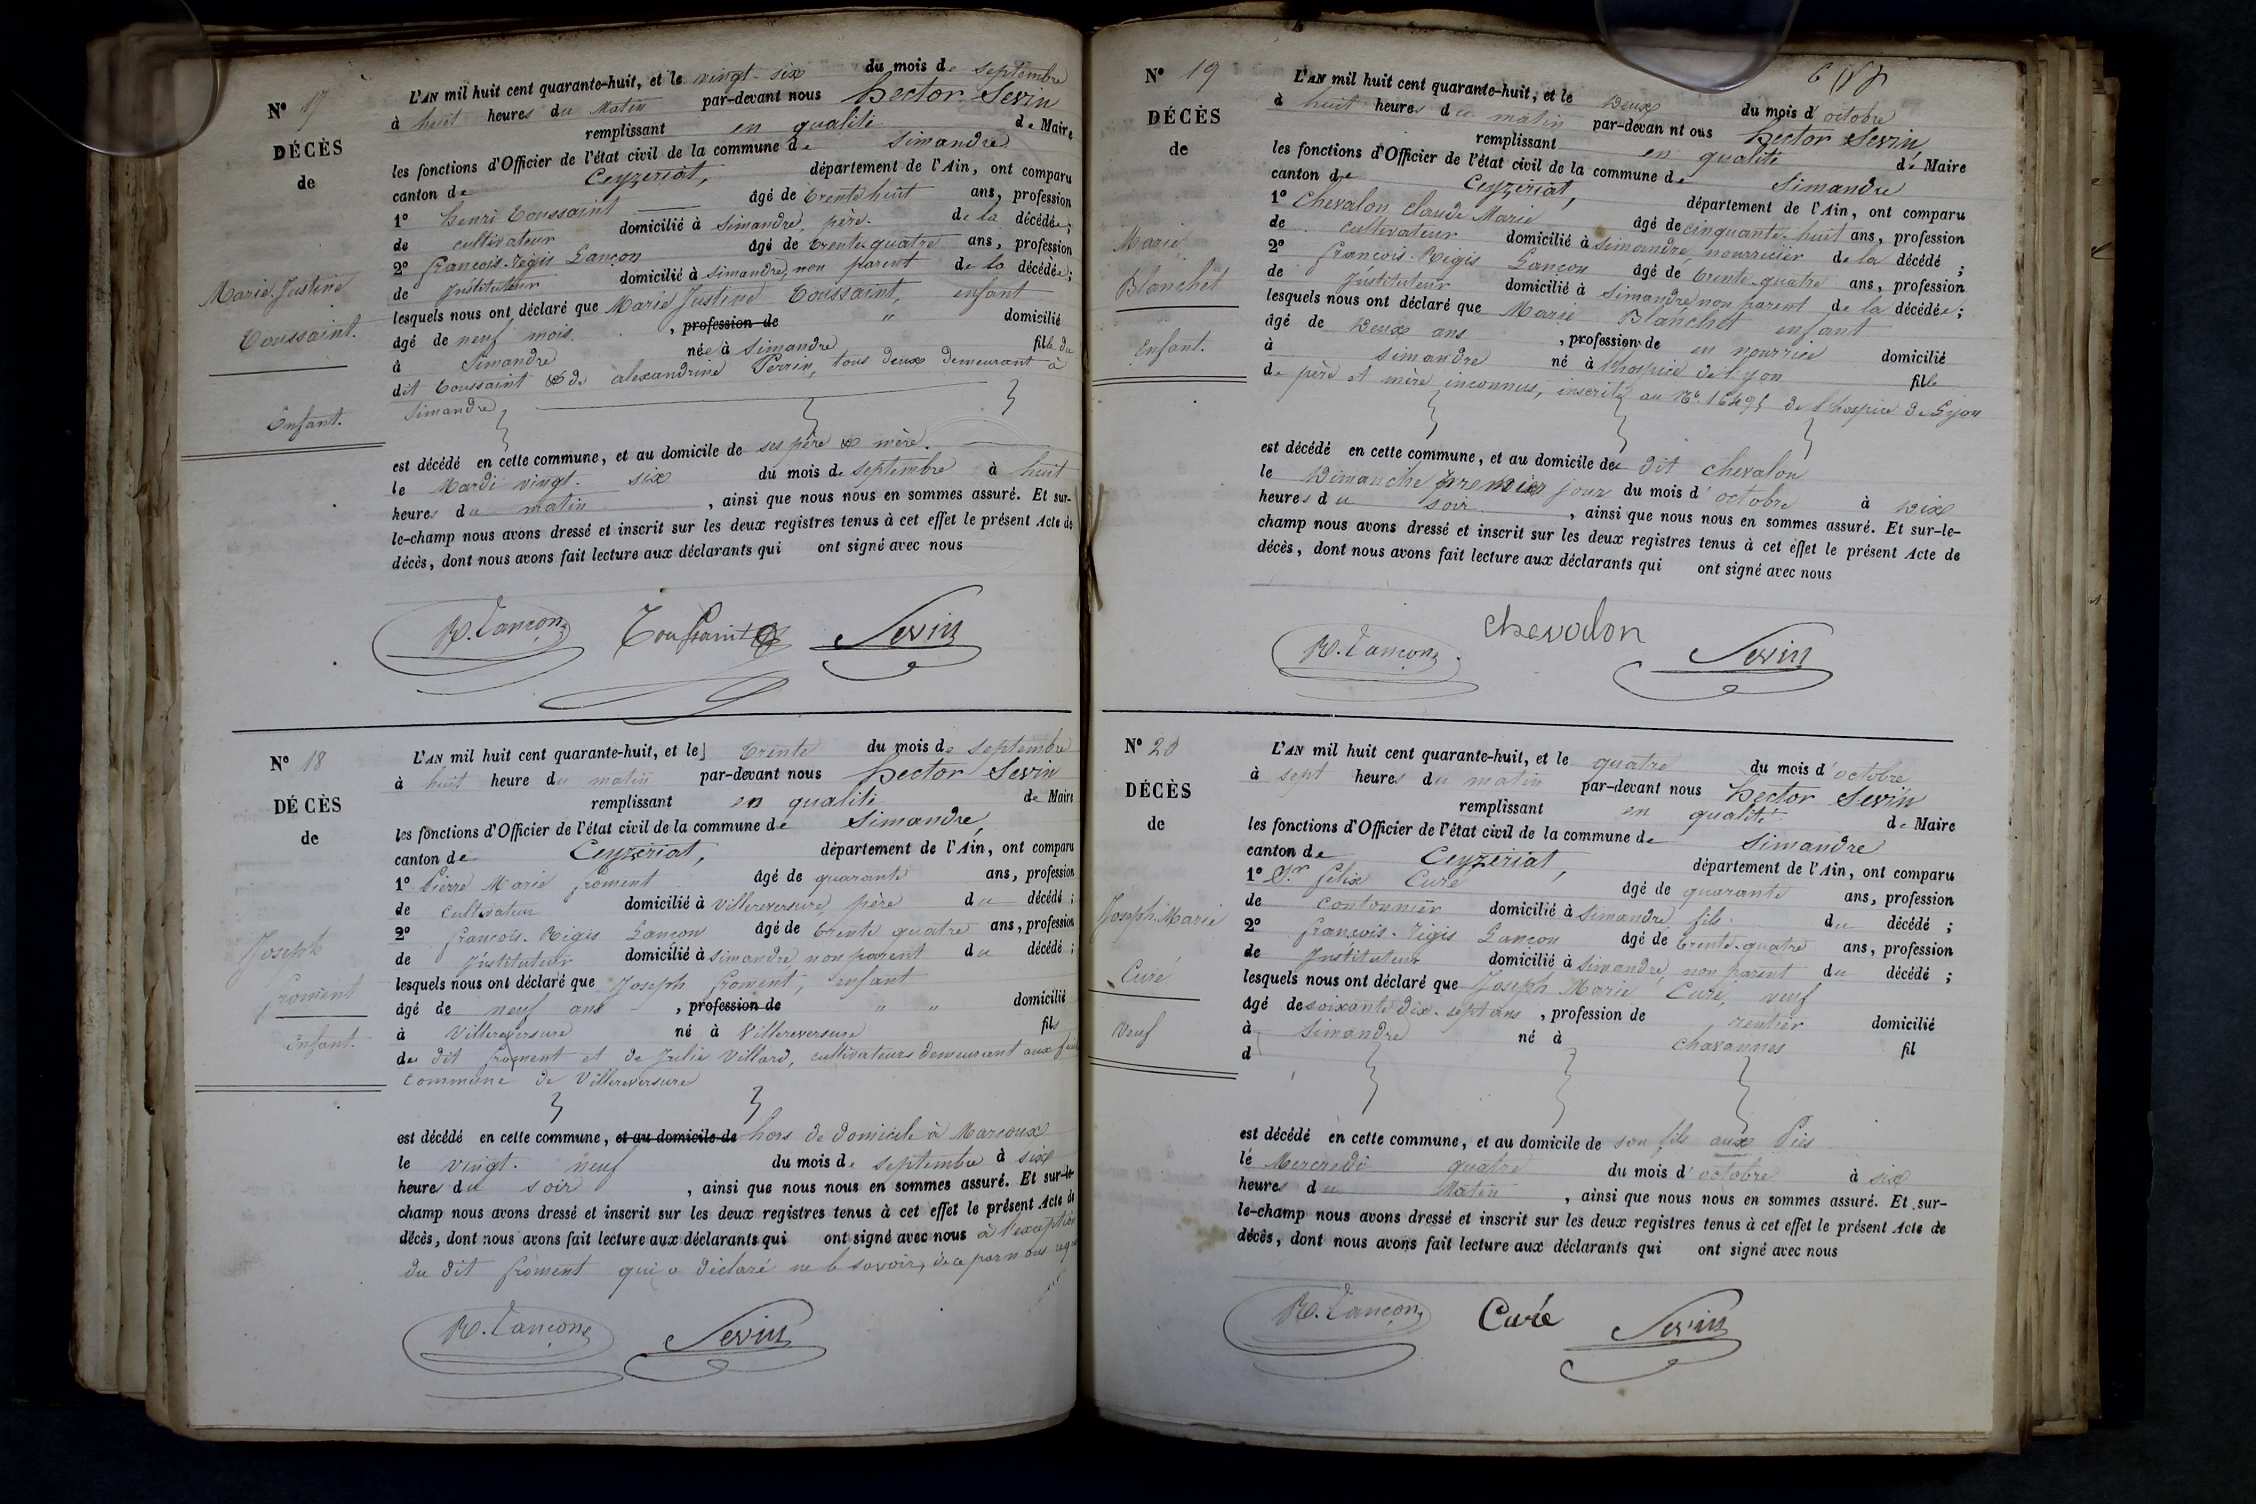 N° 17
DÉCÈS
de
Marie Justine
Toussaint.
Enfant.
L'AN mil huit cent quarante-huit, et le vingt-six du mois de septembre
à huit heures du Matin par-devant nous Hector Sevin
remplissant en qualité de Maire
les fonctions d'Officier de l'état civil de la commune de Simandre
canton de Ceyzériat, département de l'Ain, ont comparu
1° henri Toussaint âgé de trente huit ans, profession
de cultivateur domicilié à Simandre, père de la décédée;
2° françois-régis Lançon âgé de trente-quatre ans, profession
de Instituteur domicilié à Simandre, non parent de la décédée;
lesquels nous ont déclaré que Marie Justine Toussaint, enfant
âgé de neuf mois , profession de " domicilié
à Simandre née à Simandre fille du
dit Toussaint & de alexandrine Perrin, tous deux demeurant à
Simandre
est décédé en cette commune, et au domicile de ses père & mère.
le Mardi vingt-six du mois de septembre à huit
heures du matin , ainsi que nous nous en sommes assuré. Et sur-
le-champ nous avons dressé et inscrit sur les deux registres tenus à cet effet le présent Acte de
décès, dont nous avons fait lecture aux déclarants qui ont signé avec nous
R. Lançon Toussaint Sevin
N° 18
DÉCÈS
de
Joseph
froment
Enfant.
L'AN mil huit cent quarante-huit, et le trente du mois de septembre
à huit heure du matin par-devant nous Hector Sevin
remplissant en qualité de Maire
les fonctions d'Officier de l'état civil de la commune de Simandre,
canton de Ceyzériat, département de l'Ain, ont comparu
1° Pierre Marie froment âgé de quarante ans, profession
de cultivateur domicilié à Villereversure, père du décédé;
2° françois-Régis Lançon âgé de trente quatre ans, profession
de Instituteur domicilié à Simandre non parent du décédé;
lesquels nous ont déclaré que Joseph froment, enfant
âgé de neuf ans , profession de " " domicilié
à Villereversure né à Villereversure fils
de dit froment et de Julie Villard, cultivateurs demeurant aux
commune de Villereversure
est décédé en cette commune, et au domicile de hors de domicile à Marcoux
le vingt-neuf du mois de septembre à six
heures du soir , ainsi que nous nous en sommes assuré. Et sur-le-
champ nous avons dressé et inscrit sur les deux registres tenus à cet effet le présent Acte de
décès, dont nous avons fait lecture aux déclarants qui ont signé avec nous à l'exception
du dit froment qui a déclaré ne le savoir, de ce par nous
R. Lançon Sevin
N° 19
DÉCÈS
de
Marie
Blanchet
Enfant.
L'AN mil huit cent quarante-huit, et le Deux du mois d'octobre
à huit heures du matin par-devan nt ous Hector Sevin,
remplissant en qualité de Maire
les fonctions d'Officier de l'état civil de la commune de Simandre
canton de Ceyzériat, département de l'Ain, ont comparu
1° Chevalon Claude Marie âgé de cinquante-huit ans, profession
de cultivateur domicilié à Simandre, nourricier de la décédé;
2° françois-Régis Lançon âgé de trente-quatre ans, profession
de Instituteur domicilié à Simandre non parent de la décédée;
lesquels nous ont déclaré que Marie Blanchet enfant
âgé de Deux ans , profession de en nourrice domicilié
à Simandre né à l'hospice de Lyon fille
de père et mère inconnus, inscrite au N° de l'hospice de Lyon
est décédé en cette commune, et au domicile de dit chevalon
le Dimanche premier jour du mois d'octobre à Dix
heures du soir , ainsi que nous nous en sommes assuré. Et sur-le-
champ nous avons dressé et inscrit sur les deux registres tenus à cet effet le présent Acte de
décès, dont nous avons fait lecture aux déclarants qui ont signé avec nous
R. Lançon chevalon Sevin
N° 20
DÉCÈS
de
Joseph Marie
Curé
Veuf
L'AN mil huit cent quarante-huit, et le quatre du mois d'octobre
à sept heures du matin par-devant nous Hector Sevin
remplissant en qualité de Maire
les fonctions d'Officier de l'état civil de la commune de Simandre
canton de Ceyzériat, département de l'Ain, ont comparu
1° félix Curé âgé de quarante ans, profession
de cantonnier domicilié à Simandre, fils du décédé;
2° françois-régis Lançon âgé de trente-quatre ans, profession
de Instituteur domicilié à Simandre, non parent du décédé;
lesquels nous ont déclaré que Joseph Marie Curé, veuf
âgé de soixante Dix-sept ans , profession de rentier domicilié
à Simandre né à chavannes fil
d
est décédé en cette commune, et au domicile de son fils aux
le Mercredi quatre du mois d'octobre à six
heures du Matin , ainsi que nous nous en sommes assuré. Et sur-
le-champ nous avons dressé et inscrit sur les deux registres tenus à cet effet le présent Acte de
décès, dont nous avons fait lecture aux déclarants qui ont signé avec nous
R. Lançon Curé Sevin